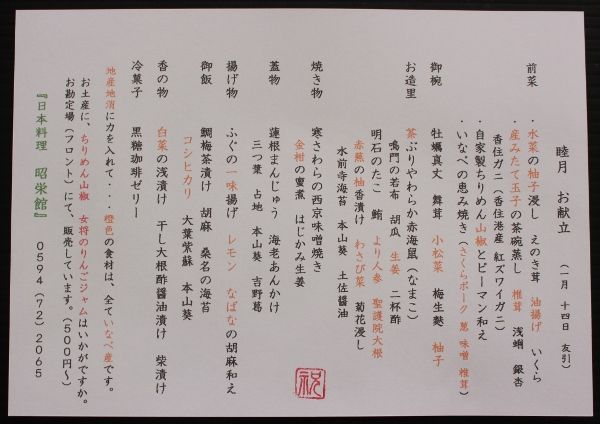 睦月 お献立 (一月 十四日 友引)
前菜 ・水菜の柚子浸し えのき茸 油揚げ いくら
・産みたて玉子の茶碗蒸し 椎茸 浅蜊 銀杏
香住ガニ(香住港産 紅ズワイガニ)
・自家製ちりめん山椒とピーマン和え
・いなべの恵み焼き(さくらポーク 葱 味噌 椎茸)
御椀 牡蠣真丈 舞茸 小松菜 梅生麩 柚子
お造里 茶ぶりやわらか赤海鼠(なまこ)
鳴門の若布 胡瓜 生姜 二杯酢
明石のたこ 鮪 より人参 聖護院大根
赤蕪の柚香漬け わさび菜 菊花浸し
水前寺海苔 本山葵 土佐醤油
焼き物 寒さわらの西京味噌焼き
金柑の蜜煮 はじかみ生姜
蓋物 蓮根まんじゅう 海老あんかけ
三つ葉 占地 本山葵 吉野葛
揚げ物 ふぐの一味揚げ レモン なばなの胡麻和え
御飯 鯛梅茶漬け 胡麻 桑名の海苔
コシヒカリ 大葉紫蘇 本山葵
香の物 白菜の浅漬け 干し大根醤油漬け 柴漬け
冷菓子 黒糖珈琲ゼリー
地産地消に力を入れて・・・橙色の食材は、全ていなべ産です。
お土産に、ちりめん山椒 女将のりんごジャムはいかがですか。
お勘定場(フロント)にて、販売しています。(500円~)
『日本料理 昭栄館』 0594(72)2065
祝